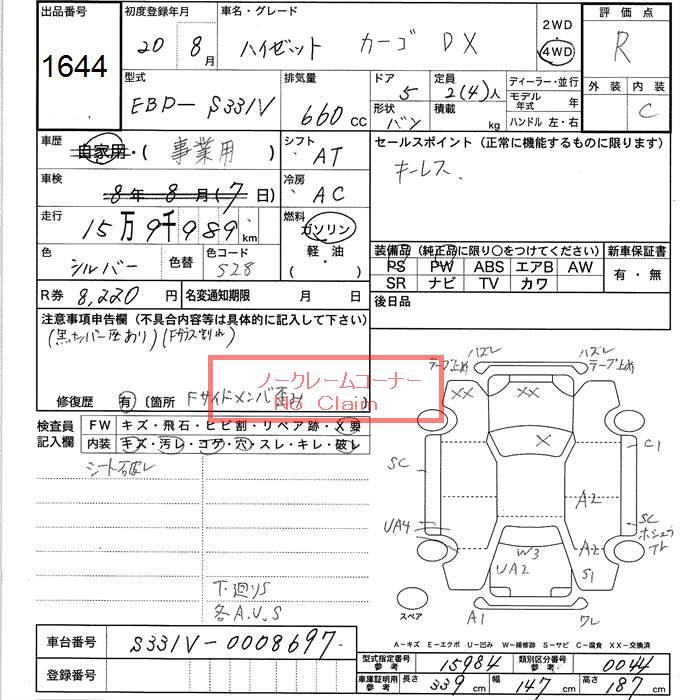 出品番号 1644
初度登録年月 20年 8月
車名・グレード ハイゼット カーゴ DX
2WD
4WD
評価点 R
外装 内装 C
型式 EBD-S331V
排気量 660 cc
ドア 5
形状 バン
定員 2(4)人
積載 kg
ディーラー・並行
モデル年式 年
ハンドル 左・右
車歴 自家用・( 事業用 )
シフト AT
車検 8年 8月 (7日)
冷房 AC
走行 15万9千989 km
燃料 ガソリン
軽・油
( )
色 シルバー 色替 色コード S28
R券 8,220円 名変通知期限 月 日
セールスポイント (正常に機能するものに限ります)
キーレス
装備品 (純正品に限り○をつけてください)
PS PW ABS エアB AW
SR ナビ TV カワ
新車保証書
有・無
後日品
注意事項申告欄 (不具合内容等は具体的に記入して下さい)
(黒ナンバー歴あり)(Fガラス割れ)
ノークレームコーナー
No Claim
修復歴 有 〔箇所 Fサイドメンバ歪み 〕
検査員記入欄
FW キズ・飛石・ヒビ割・リペア跡・X要
内装 キズ・汚レ・コゲ・穴・スレ・キレ・破レ
シート破レ
下廻りS
各A.U.S
ハズレ
テープ止め
ハズレ
テープ止め
XX XX XX
X
C1
SC
A2
UA4
SC
A2
W3
UA2
S1
A1
ワレ
スペア
A-キズ E-エクボ U-凹み W-補修跡 S-サビ C-腐食 XX-交換済
車台番号 S331V-0008697
登録番号
型式指定番号 参考 15984
類別区分番号 参考 0044
車庫証明用 参考 長さ 339 cm 幅 147 cm 高さ 187 cm